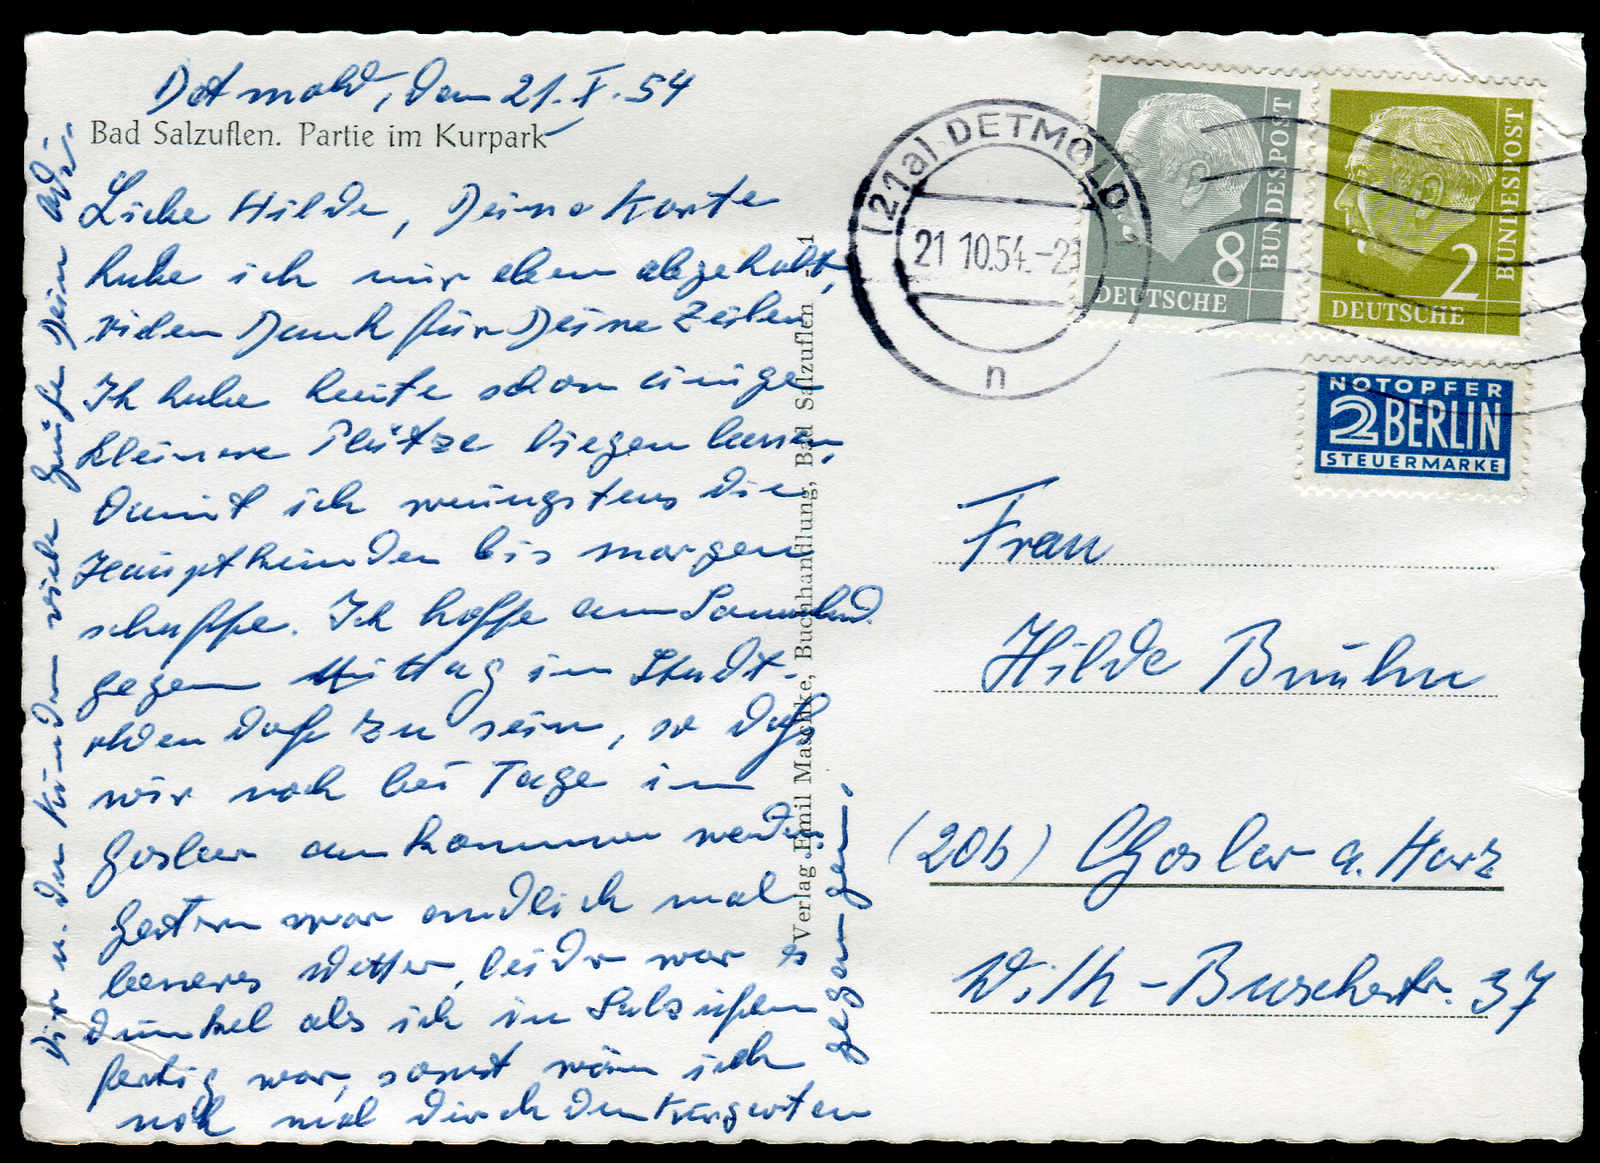 Detmold, den 21.X.54
Bad Salzuflen. Partie im Kurpark
Liebe Hilde, Deine Karte
habe ich mir eben abgeholt,
vielen Dank für Deine Zeilen
Ich habe heute schon einige
kleinere Plätze liegen lassen,
damit ich wenigstens die
Hauptkunden bis morgen
schaffe. Ich hoffe am Sonnabend
gegen Mittag in Stadt-
oldendorf zu sein, so daß
wir noch bei Tage in
Goslar ankommen werden
Gestern war endlich mal
besseres Wetter, leider war es
dunkel als ich in Salzuflen
fertig war, sonst wäre ich
noch mal durch den Kurgarten
gegangen.
Dir u. den Kindern viele Grüße Dein
Verlag Emil Maschke, Buchhandlung, Bad Salzuflen
(21a) DETMOLD
21.10.54.-21
n
8
DEUTSCHE
BUNDESPOST
2
DEUTSCHE
BUNDESPOST
NOTOPFER
2 BERLIN
STEUERMARKE
Frau
Hilde Bruhn
(20b) Goslar a. Harz
Wilh-Buschstr. 37